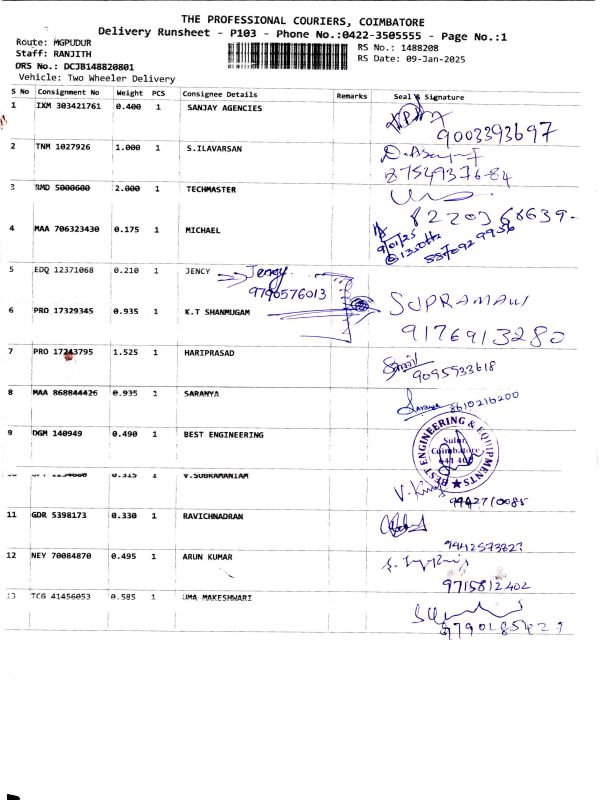 THE PROFESSIONAL COURIERS, COIMBATORE
Delivery Runsheet - P103 - Phone No.:0422-3505555 - Page No.:1
Route: MGPUDUR
RS No.: 1488208
Staff: RANJITH
RS Date: 09-Jan-2025
DRS No.: DCJB148820801
Vehicle: Two Wheeler Delivery
S No Consignment No Weight PCS Consignee Details Remarks Seal & Signature
1 IXM 303421761 0.400 1 SANJAY AGENCIES
9003393697
2 TNM 1027926 1.000 1 S.ILAVARSAN
87549376-84
3 RMD 5000600 2.000 1 TECHMASTER
8220368639-
4 MAA 706323430 0.175 1 MICHAEL
9/01/25
5 EDQ 12371068 0.210 1 JENCY Jency
9790576013
6 PRO 17329345 0.935 1 K.T SHANMUGAM
SUPRAMANI
9176913280
7 PRO 17243795 1.525 1 HARIPRASAD
9095933618
8 MAA 868844426 0.935 1 SARANYA
Saranya 8610216200
9 DGM 140949 0.490 1 BEST ENGINEERING
BEST ENGINEERING & EQUIPMENTS
Sulur
Coimbatore
641 402
0.315 1 V.SUBRAMANIAM
9442710085
11 GDR 5398173 0.330 1 RAVICHNADRAN
9442573827
12 NEY 70084870 0.495 1 ARUN KUMAR
9715812402
13 TCG 41456053 0.585 1 UMA MAKESHWARI
9790185429